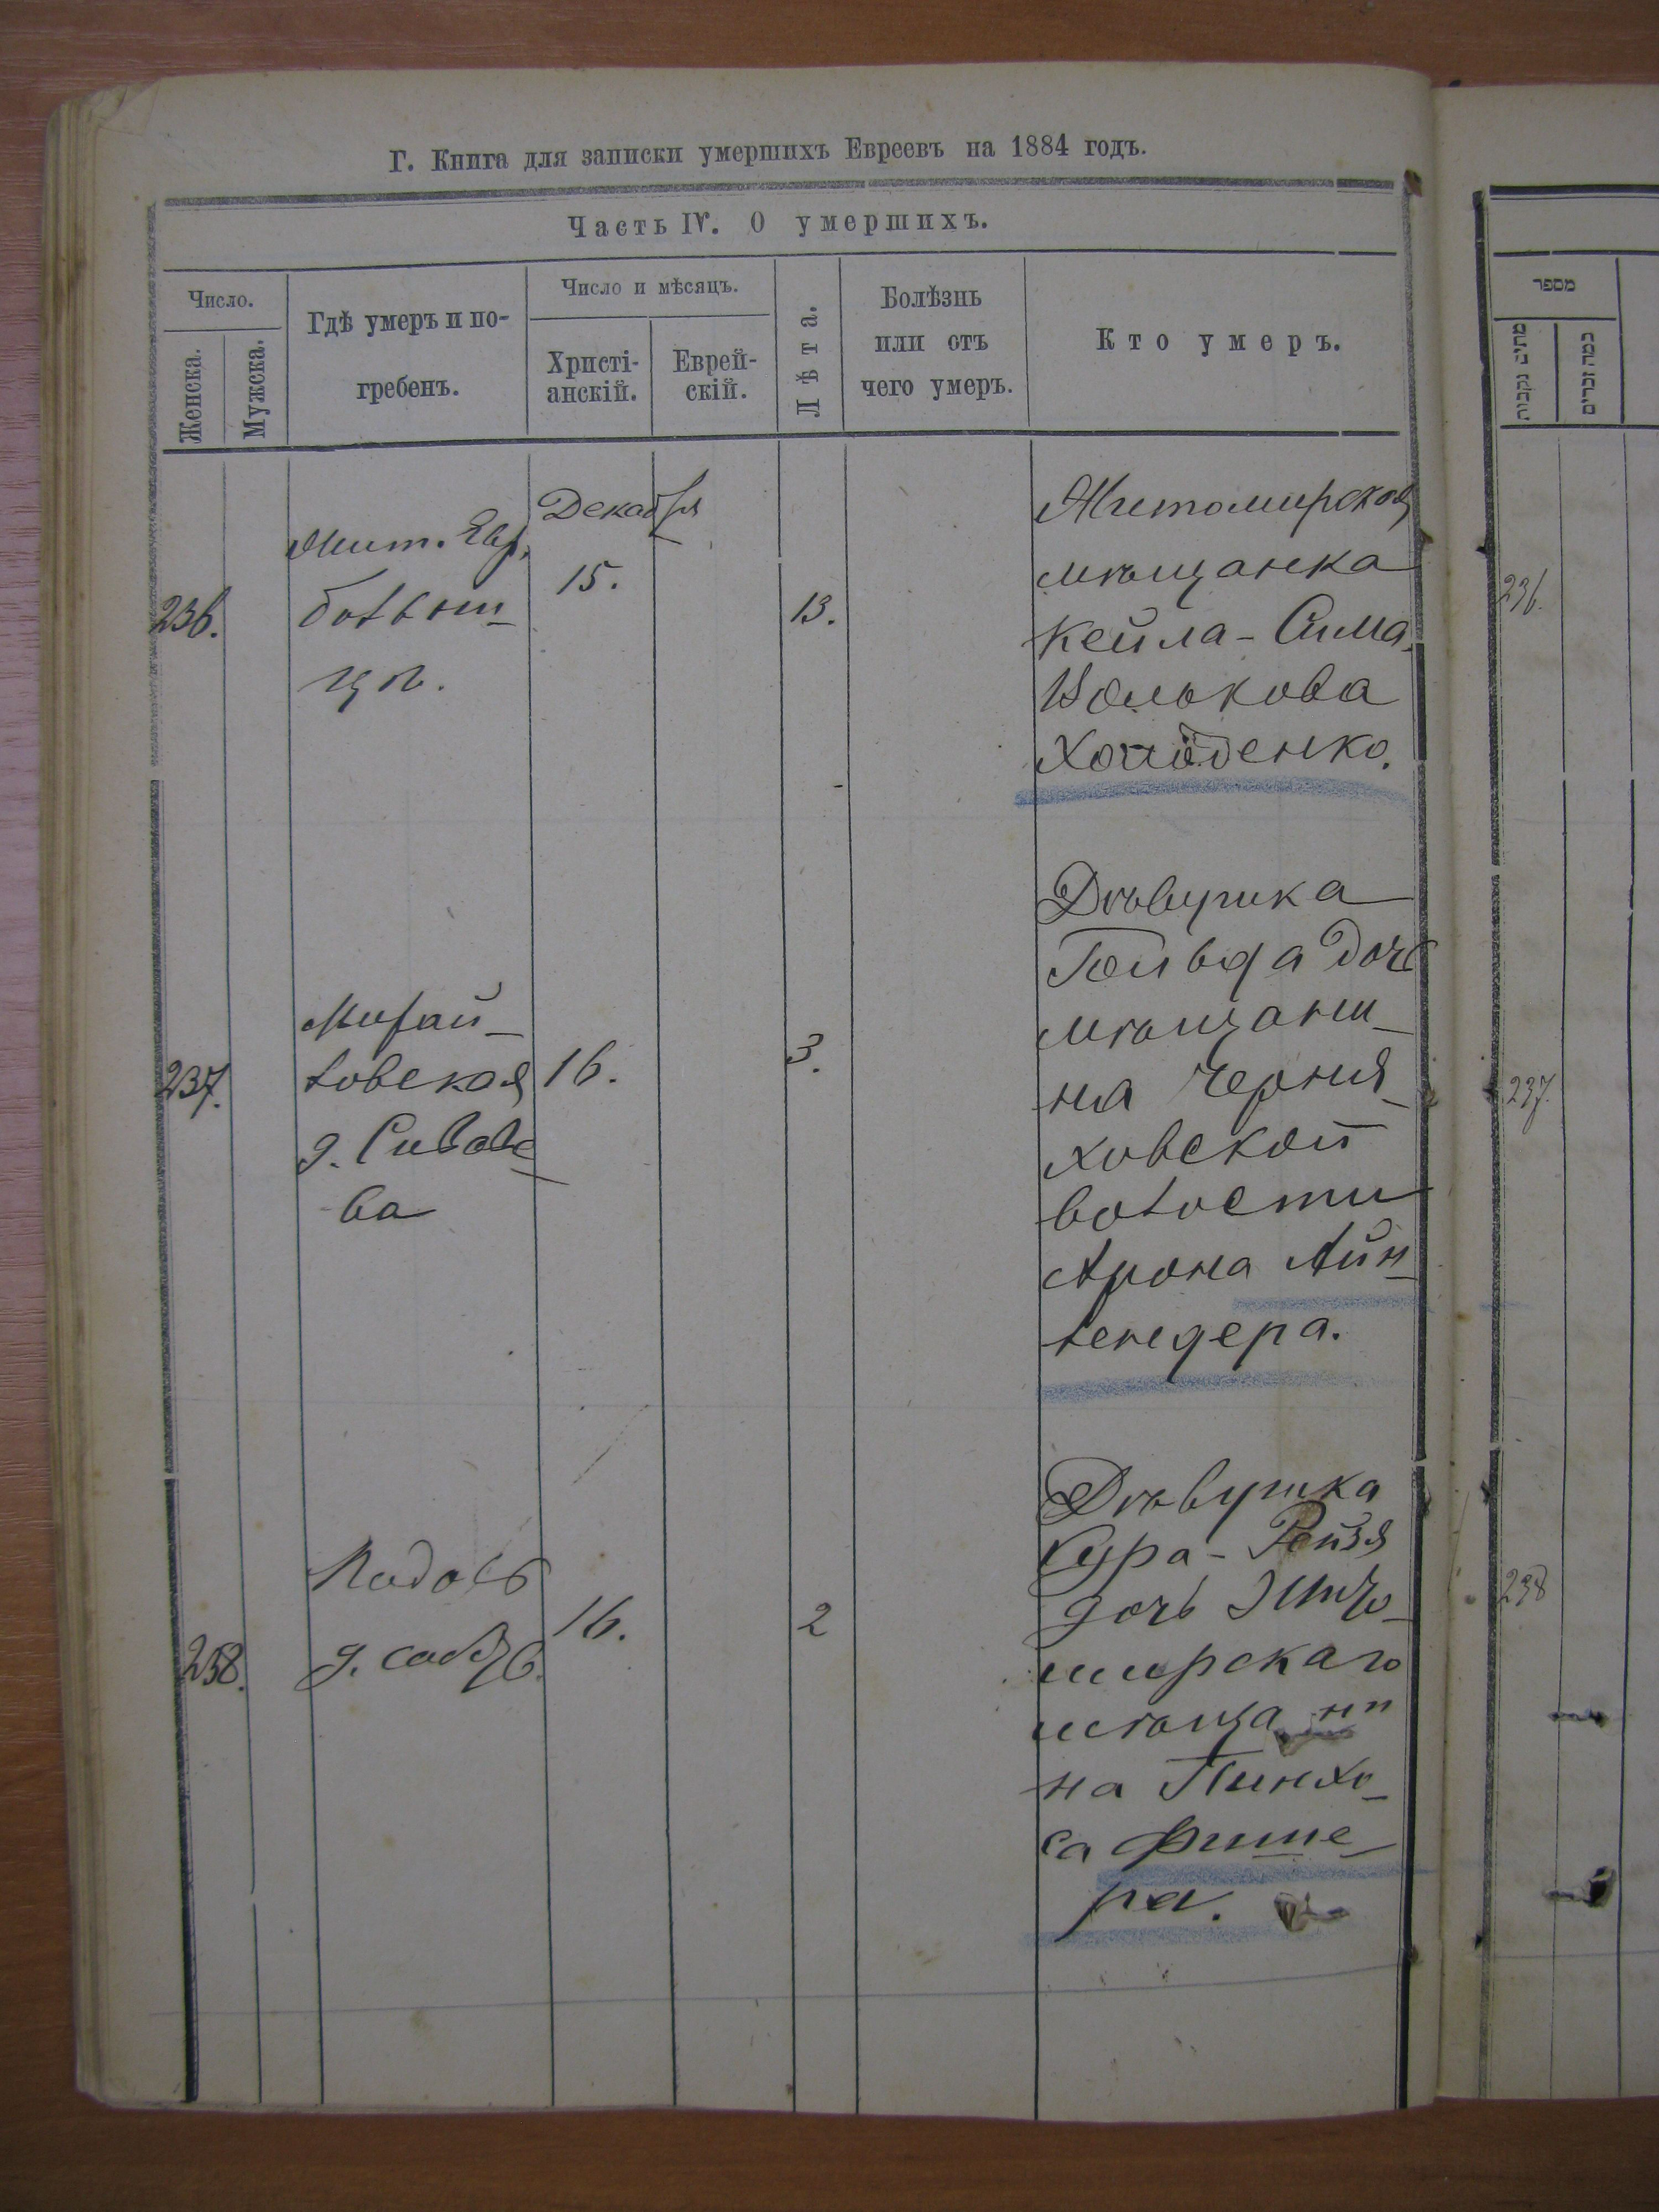 Г. Книга для записки умершихъ Евреевъ на 1884 годъ.
Часть IV. О умершихъ.
Число.
Женска.
Мужска.
Гдѣ умеръ и по-
гребенъ.
Число и мѣсяцъ.
Христі-
анскій.
Еврей-
скій.
Лѣта.
Болѣзнь
или отъ
чего умеръ.
Кто умеръ.
236.
Жит. Евр.
больни-
цѣ.
Декабря
15.
13.
Житомирская
мѣщанка
Кейла - Сима
Волькова
Холоденко.
237.
Михай-
ловская
д.
ва
16.
3.
Дѣвушка
Гольда дочь
мѣщани-
на Черня-
ховской
волости
Арона Айн-
лендера.
238.
Подолъ
д.
16.
2
Дѣвушка
Сура - Рейзя
дочь Жито-
мирскаго
мѣщани-
на Пинхо-
са Фише-
ра.
מספר
מתים נקבות
כמה זכרים
236.
237.
238